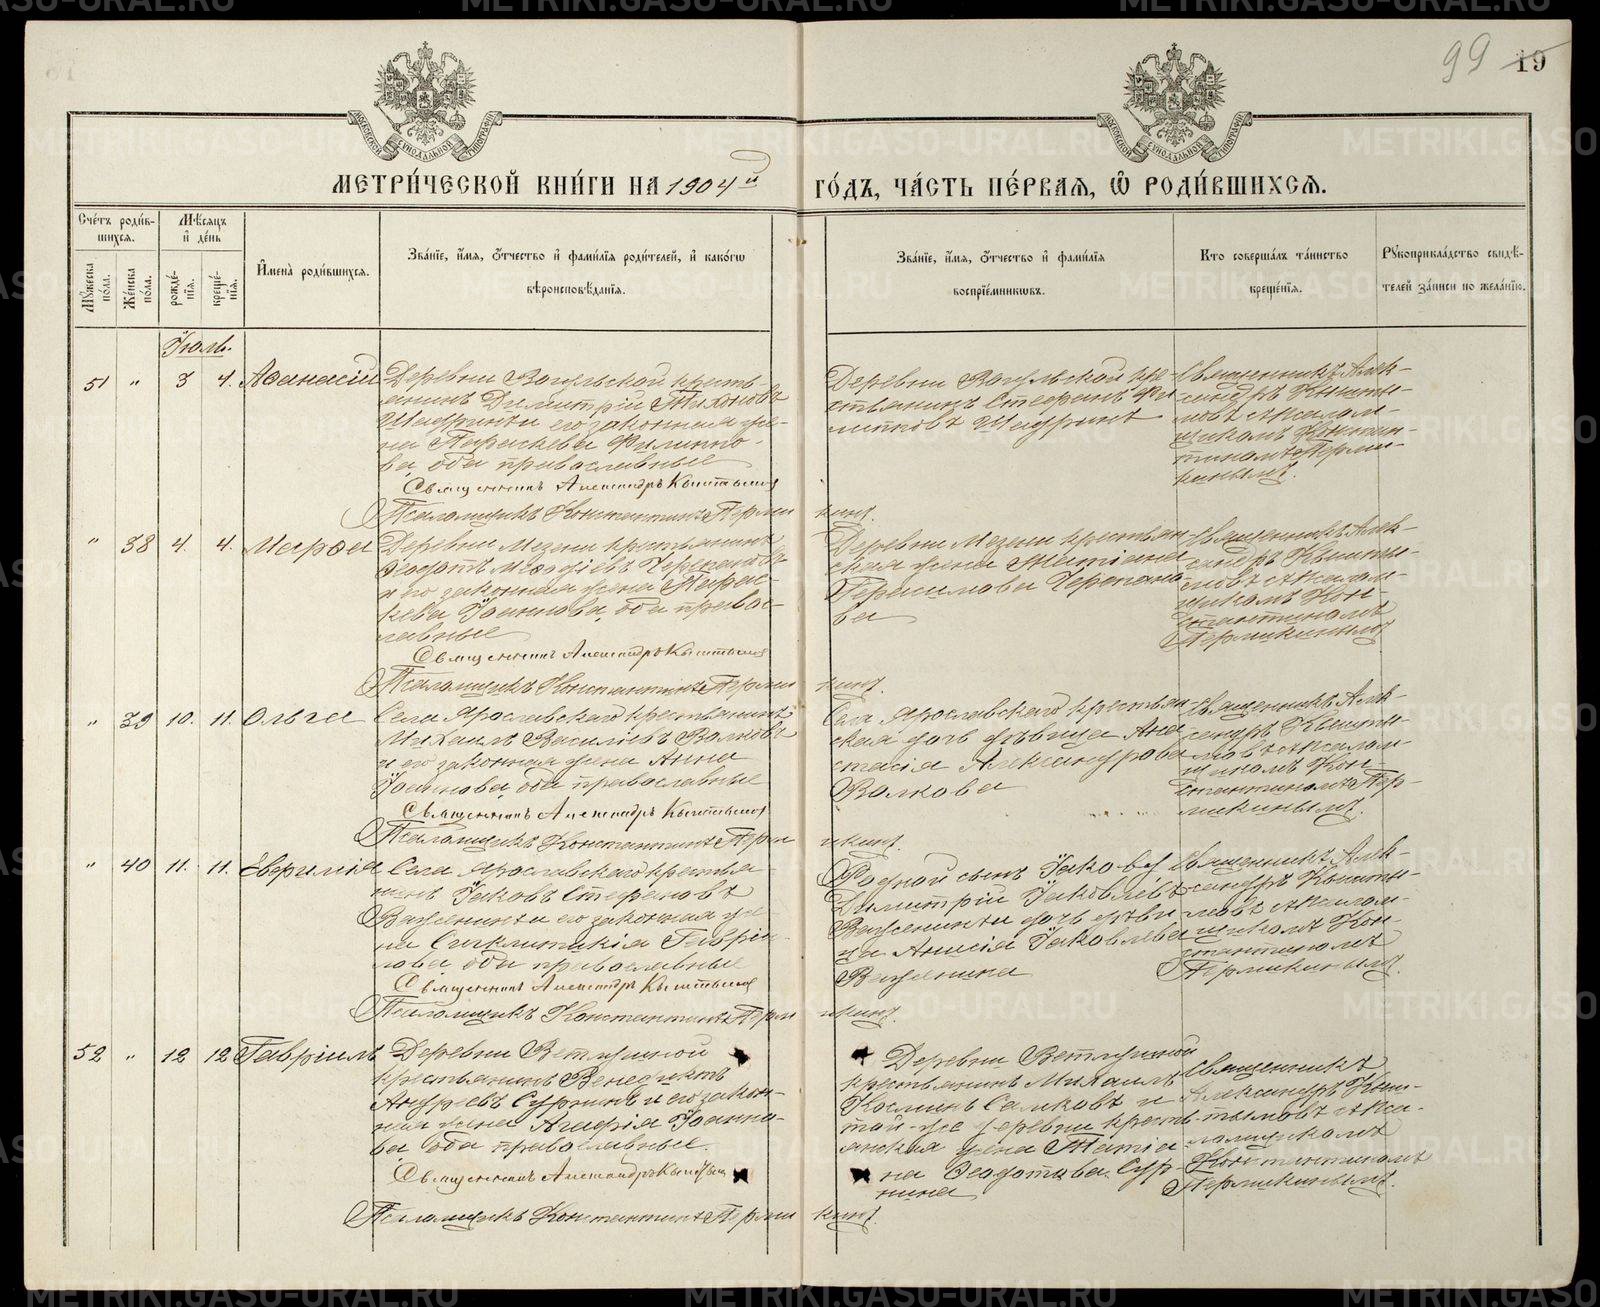 99 19
МЕТРИ́ЧЕСКОЙ КНИ́ГИ НА 1904й ГО́ДЪ, ЧА́СТЬ ПЕ́РВАѦ, Ѡ РОДИ́ВШИХСѦ.
Счетъ родившихся.
Мѣсяцъ и день
Мужеска пола.
Женска пола.
рожденія.
крещенія.
Имена родившихся.
Званіе, имя, отчество и фамилія родителей, и какого
вѣроисповѣданія.
Званіе, имя, отчество и фамилія
воспріемниковъ.
Кто совершалъ таинство
крещенія.
Рукоприкладство свидѣ-
телей записи по желанію.
Іюль.
51 " 3 4. Аѳанасій
Деревни Вогульской кресть-
янинъ Димитрій Тихоновъ
Шадринъ и его законная же-
на Параскева Филиппо-
ва, оба православные
Священникъ Александръ Кыштымов
Псаломщикъ Константинъ Пермикинъ.
Деревни Вогульской кре-
стьянинъ Стефанъ Фи
липповъ Шадринъ
Священникъ Алек-
сандръ Кышты-
мовъ съ псалом-
щикомъ Констан-
тиномъ Перми-
кинымъ.
" 38 4. 4. Марѳа
Деревни Мезени крестьянинъ
Ѳеодотъ Меѳодіевъ Черепановъ
и его законная жена Парас-
кева Іоаннова, оба правос-
лавные
Священникъ Александръ Кыштымов
Псаломщикъ Константинъ Пермикинъ.
Деревни Мезени крестьян
ская жена Татіана
Герасимова Черепано
ва
Священникъ Алек-
сандръ Кышты-
мовъ съ псалом-
щикомъ Кон-
стантиномъ
Пермикинымъ
" 39 10. 11. Ольга
Села Ярославскаго крестьянинъ
Михаилъ Василіевъ Волковъ
и его законная жена Анна
Іоаннова, оба православные
Священникъ Александръ Кыштымов
Псаломщикъ Константинъ Пермикинъ.
Села Ярославскаго крестьян
ская дочь дѣвица Ана
стасія Александрова
Волкова
Священникъ Алек-
сандръ Кышты-
мовъ съ псалом-
щикомъ Кон-
стантиномъ Пер-
микинымъ.
" 40 11. 11. Евфимія
Села Ярославскаго крестья-
нинъ Іаковъ Стефановъ
Важенинъ и его законная же-
на Синклитикія Гаврі-
лова оба православные
Священникъ Александръ Кыштымов
Псаломщикъ Константинъ Пермикинъ.
Родной сынъ Іакову
Димитрій Іаковлевъ
Важенинъ и дочь дѣви
ца Анисія Іаковлева
Важенина
Священникъ Алек-
сандръ Кышты-
мовъ съ псалом-
щикомъ Кон-
стантиномъ
Пермикинымъ.
52 " 12 12 Гавріилъ
Деревни Ветлужной
крестьянинъ Венедиктъ
Андреевъ Суринъ и его закон-
ная жена Агафія Іоанно-
ва оба православные.
Священникъ Александръ Кыштым
Псаломщикъ Константинъ Пермикинъ.
Деревни Ветлужной
крестьянинъ Михаилъ
Косминъ Самковъ и
той-же деревни кресть-
янская жена Татіа-
на Ѳеодотова Сур-
нина
Священникъ
Александръ Кыш-
тымовъ съ пса-
ломщикомъ
Константиномъ
Пермикинымъ.
METRIKI.GASO-URAL.RU